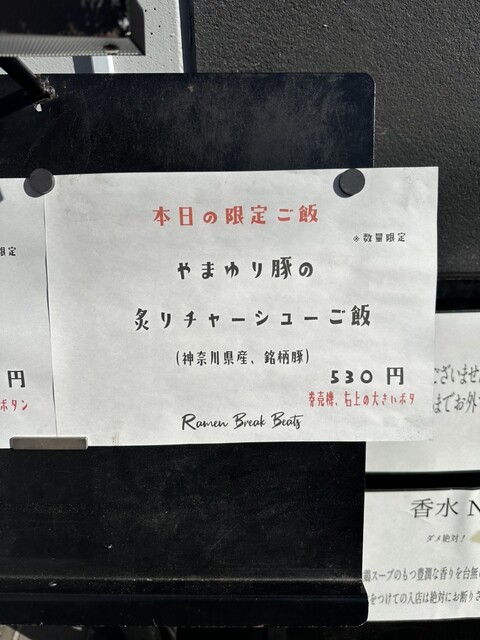 本日の限定ご飯
※数量限定
やまゆり豚の
炙りチャーシューご飯
(神奈川県産、銘柄豚)
530 円
券売機、右上の大きいボタ
Ramen Break Beats
限定
円
ボタン
ございませ
までお外
香水 N
ダメ絶対！
鶏スープのもつ豊潤な香りを台無
をつけての入店は絶対にお断りさ